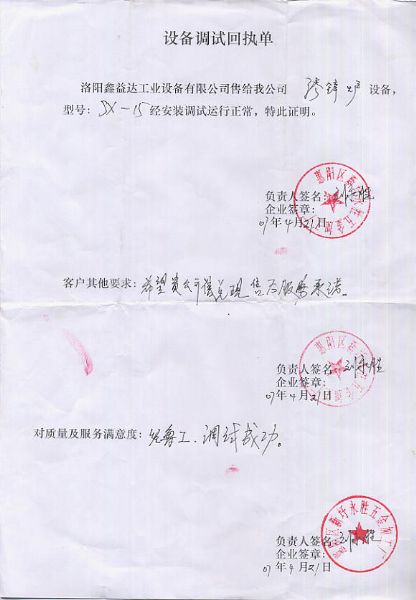 设备调试回执单
洛阳鑫益达工业设备有限公司售给我公司 铸锌炉 设备,
型号: SX-15 经安装调试运行正常,特此证明。
负责人签名: 刘永胜
企业签章:
07年4月21日
客户其他要求: 希望贵公司能兑现售后服务承诺。
负责人签名: 刘永胜
企业签章:
07年4月21日
对质量及服务满意度: 调试成功。
负责人签名: 刘永胜
企业签章:
07年4月21日